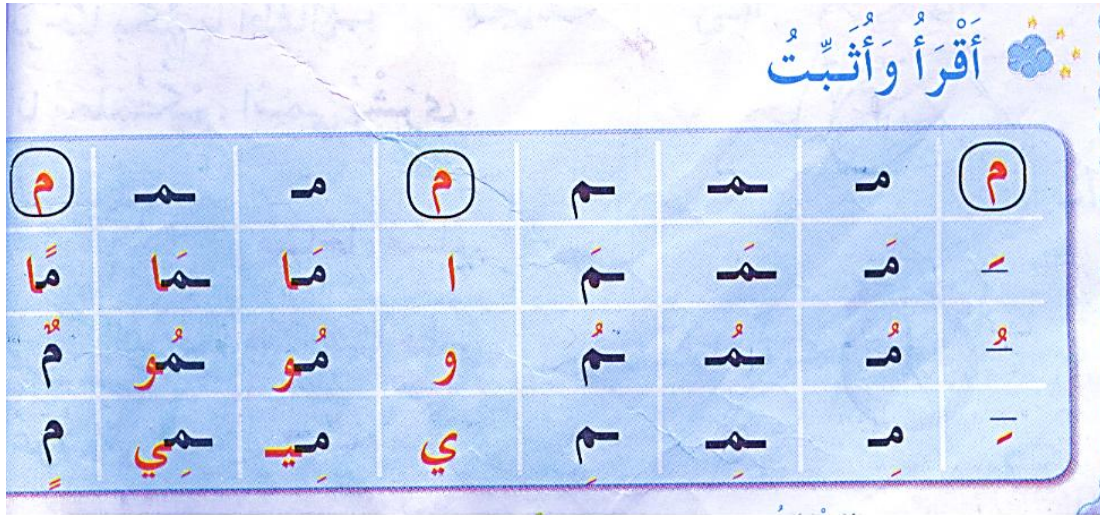 أَقْرَأُ وَأُثَبِّتُ
م مـ ـمـ ـم م مـ ـمـ م
ـَ مَـ ـمَـ ـمَ ا مَـا ـمَا مًا
ـُ مُـ ـمُـ ـمُ و مُـو ـمُو مٌ
ـِ مِـ ـمِـ ـمِ ي مِـيـ ـمِي مٍ